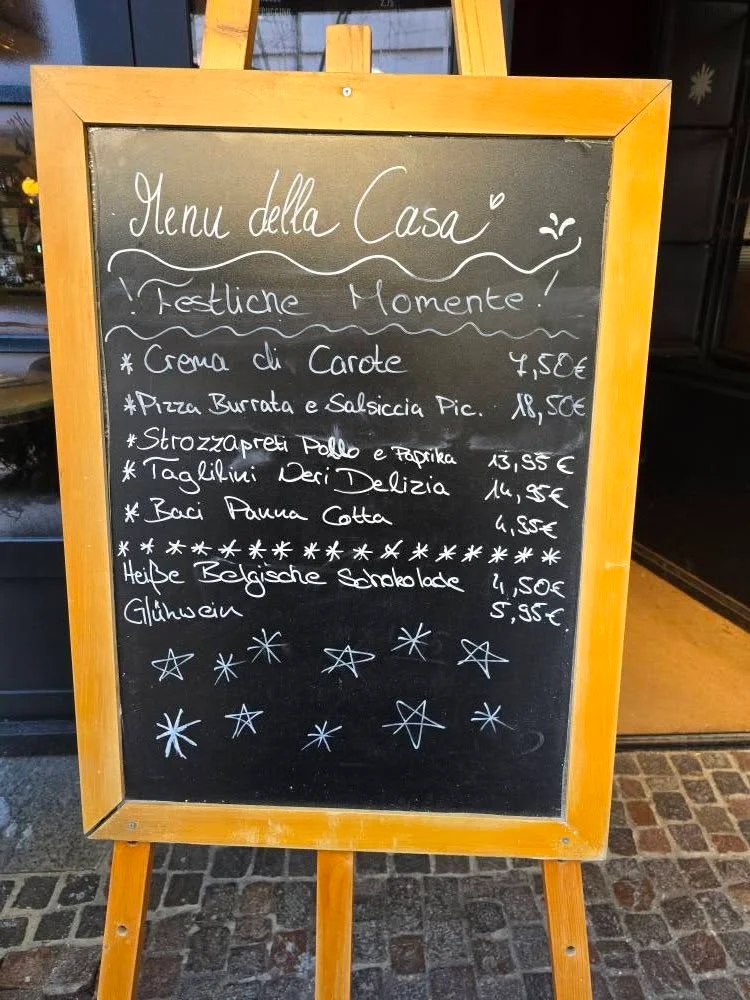 Menu della Casa
! Festliche Momente !
* Crema di Carote 7,50€
* Pizza Burrata e Salsiccia Pic. 18,50€
* Strozzapreti Pollo e Paprika 13,95€
* Taglilini Neri Delizia 14,95€
* Baci Panna Cotta 4,95€
* * * * * * * * * * * * * * * * *
Heiße Belgische Schokolade 4,50€
Glühwein 5,95€